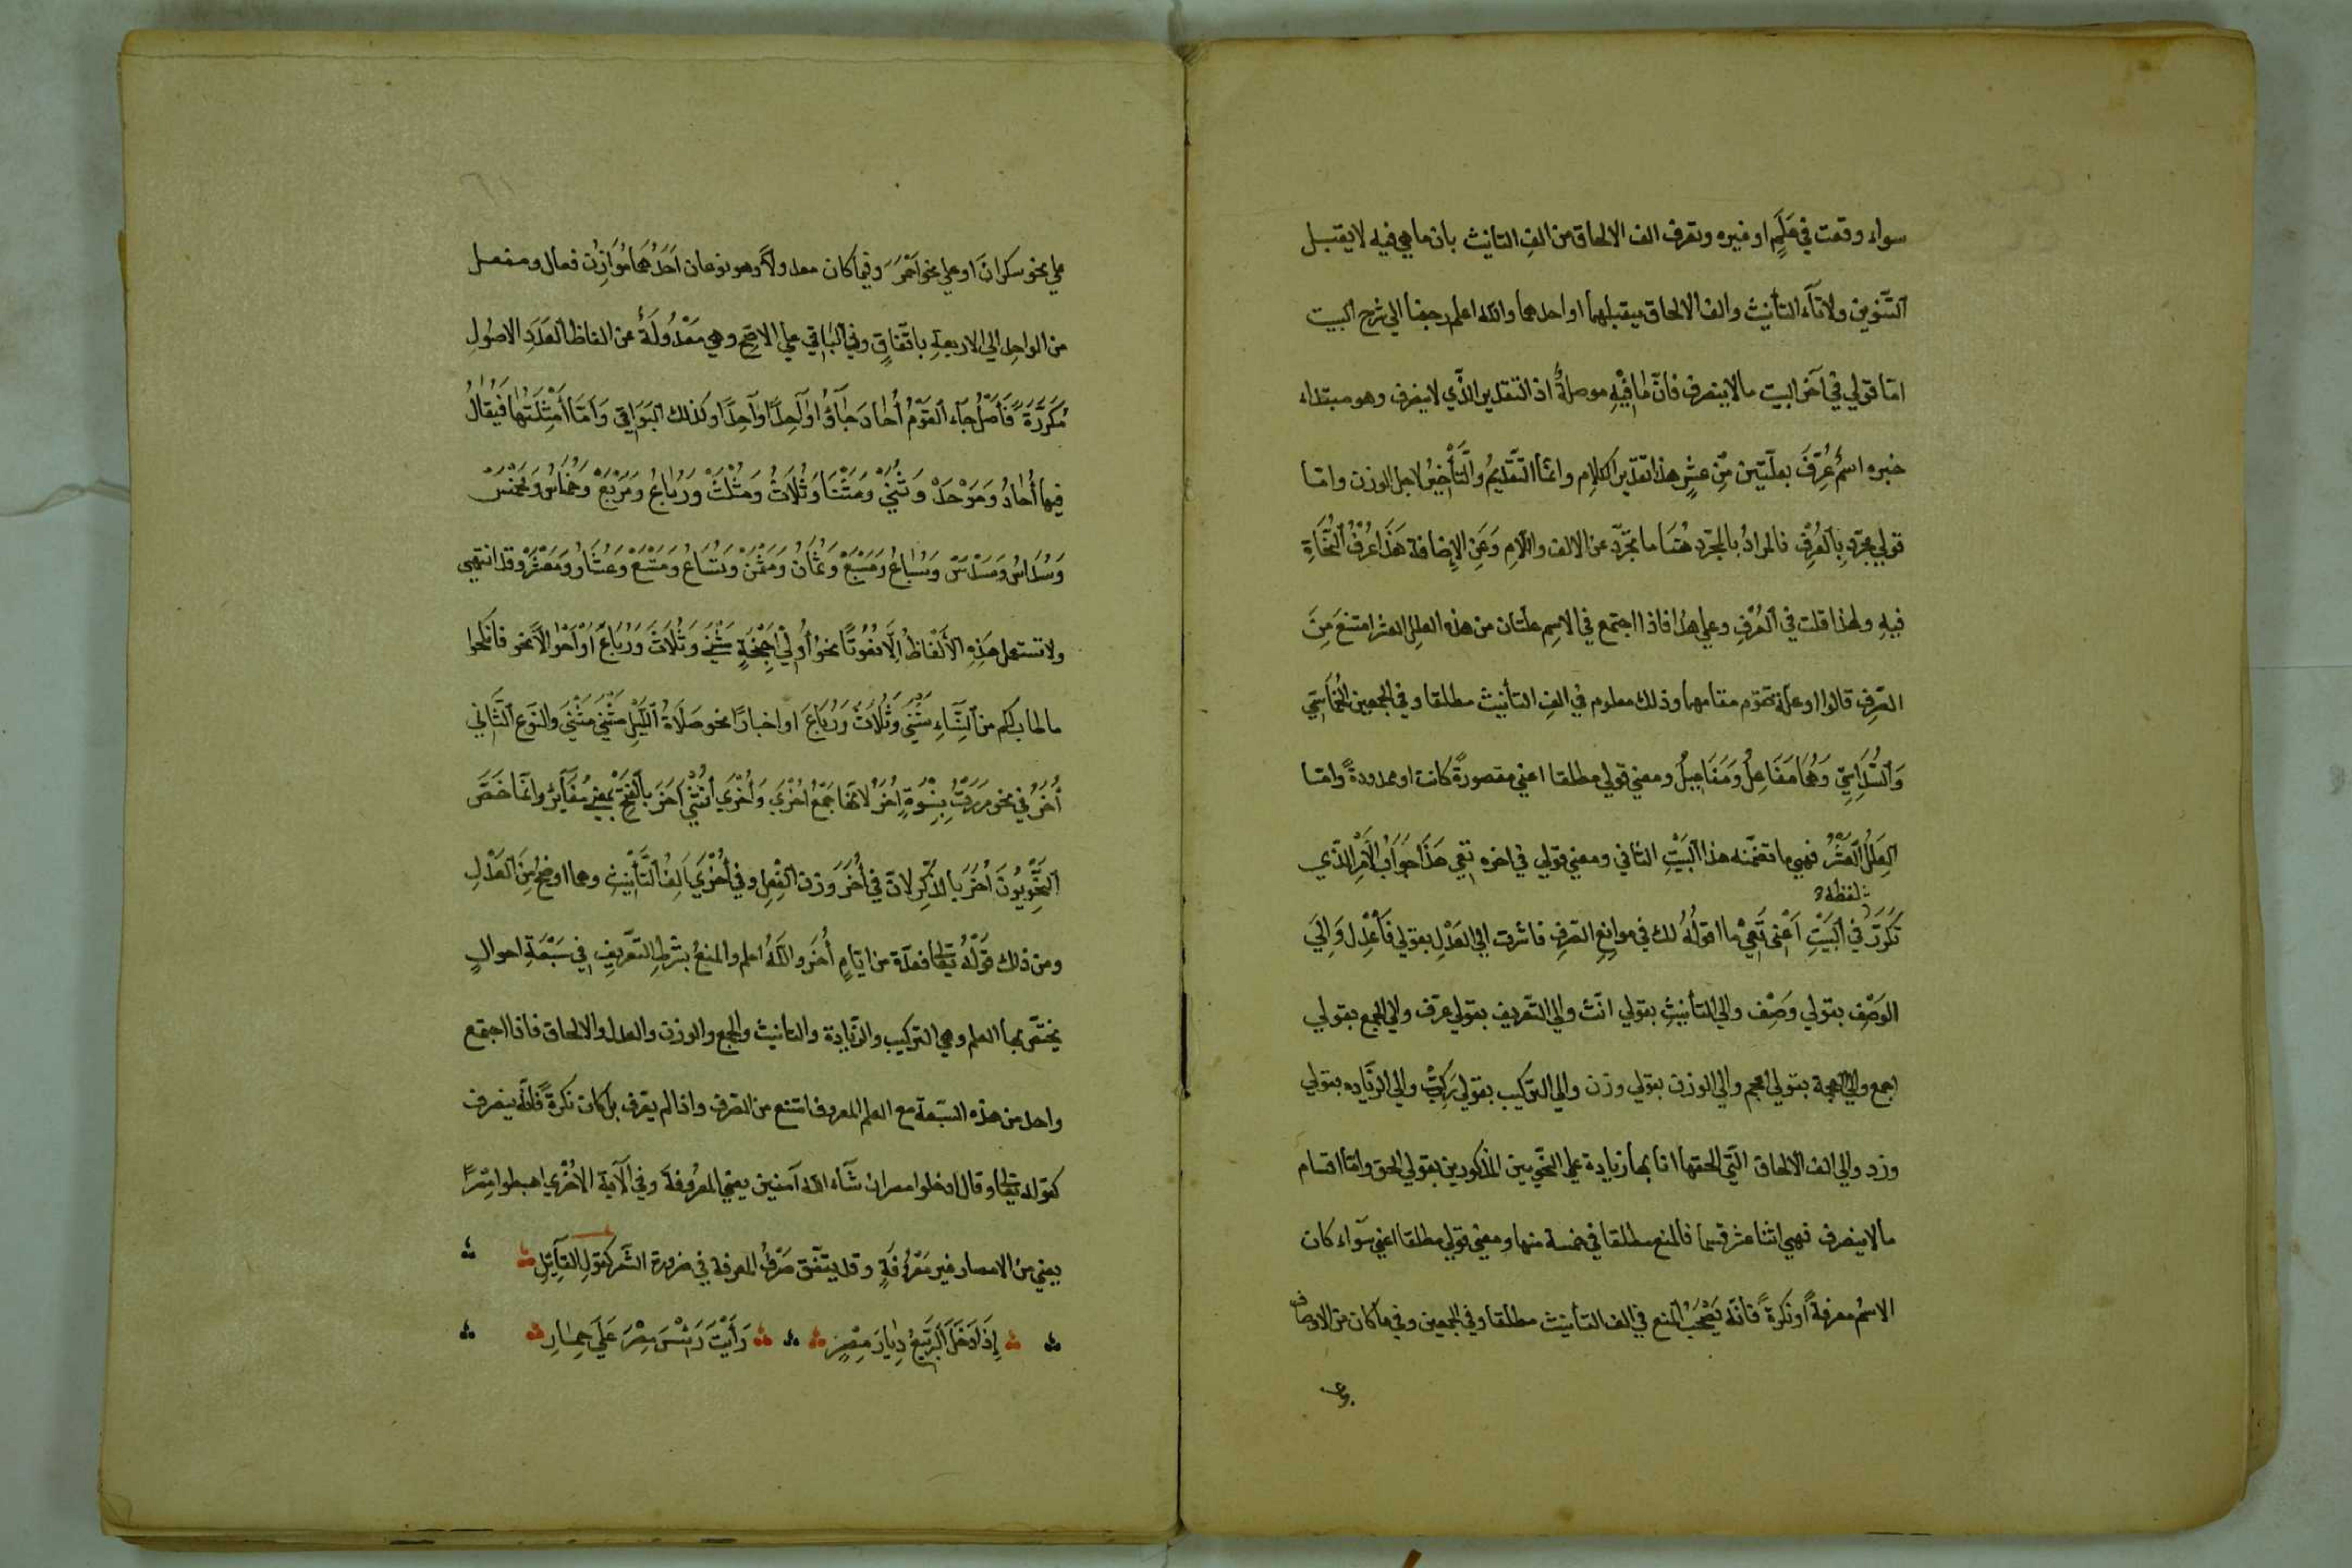 سواء وقعت في علم او غيره وتعرف الف الالحاق من الف التانيث بان ما هي فيه لا يقبل
التنوين ولا تاء التأنيث والف الالحاق يقبلهما او احدهما والله اعلم رجعنا الي شرح البيت
امّا قولي في آخر البيت مالا ينصرف فانّ ما فيه موصلةٌ اذ التقدير الّذي لا ينصرف وهو مبتداء
خبره اسمٌ عُرِفَ بعلّتين مِن عشرٍ هذا تقدير الكلام وانّما التقديمُ والتّأخيرُ لاجل الوزن وامّا
قولي مجرّدٍ بالعُرْفِ فالمرادُ بالمجرّد هُنَا ما تجرّد عن الالف واللّامِ وَعَنِ الإضافة هَذَا عُرْفُ النُّحَاةِ
فيهِ ولهذا قلت في العُرْفِ وعلي هذا فاذا اجتمع في الاسِم علتان من هذه العلل العشر امتنعَ مِنَ
الصّرفِ قالوا او علّة تقوم مقامهما وذلك معلوم في الفِ التأنيث مطلقا وفي الجمعين الخُمَاسيّ
وَالسُّدَاسِيّ وَهُمَا مَفَاعِلُ وَمَفَاعِيلُ ومعني قولي مطلقا اعني مقصورةً كانت او ممدودةً وامّا
العِلَلُ العَشْرُ فهي ما تضمّنه هذا البَيْتِ الثاني ومعني قولي في اخره تَعِي هَذَا جَوَابُ الأَمْرِ الّذي
لفظه
تَكَرّرَ في البَيْتِ أعْنى تَعِيْ ما اقولُهُ لك في موانِعِ الصّرفِ فاشرت الي العَدْلِ بقولي فَأَعْدِل وَإِلَيَ
الوَصْفِ بقولي وَصِف والي التأنيثِ بقولي انّث والي التّعريف بقولي عرّف والي الجمع بقولي
اجمع والي العجمة بقولي اعجم والي الوزن بقولي وزن والي التركيب بقولي رَكِّبْ والي الزّياده بقولي
وزد والي الف الالحاق الّتي الحقتها انا بها زيادة علي النحّويين المذكورين بقولي الحق وامّا اقسام
مالا ينصرف فهي اثنا عشر قسما فالمنع مطلقا في خمسة منها ومعني قولي مطلقا اعني سَواء كان
الاسمُ معرفةً او نكرةً فانّه يَصْحَبُ المنع في الف التأنيث مطلقا وفي الجمعين وفي ما كان من الاوصاف
علي نحو سكرانَ او علي نحو أحْمَرَ وفيما كان معدولاً وهو نوعان احَدُهُمَا مُوَازِنُ فعال ومفعل
من الواحِد الي الاربعةِ باتّفاقٍ وفي البَاقي علي الاصَحِّ وهي مَعْدُولَةٌ عن الفاظ العَدَدِ الاصُولِ
مُكَرّرَةً فَأصْلُ جآء القَوْمُ أُحَادَ جَآؤُا وَاحِدًا وَاحِدًا وكذلك البَوَاقِي وَأمّا أمْثِلَتُهَا فَيُقَالُ
فيها أُحَادُ وَمَوْحَدُ وَثُنَى وَمَثْنَا وَثُلَاثُ وَمَثْلَثُ وَرُبَاعُ وَمَرْبَعُ وَخُمَاسُ وَمَخْمَسُ
وَسُدَاسُ وَمَسْدَسُ وَسُبَاعُ وَمَسْبَعُ وَثُمَانُ وَمَثْمَنُ وَتُسَاعُ وَمَتْسَعُ وَعُشَارُ وَمَعْشَرُ وقد انتهي
ولا تستعمل هَذِهِ الألْفَاظُ إلّا نُعُوتًا نحوُ أُولِيْ أَجْنِحَةٍ مَثْنَى وَثُلَاثَ وَرُبَاعَ أوْ أحْوالًا نحو فانكحوا
ما طاب لكم من النِّسَاءِ مَثْنَى وَثُلَاثَ وَرُبَاعَ او اخبارًا نحو صَلَاةُ اللّيْلِ مَثْنَى مَثْنَى والنّوع الثّاني
أُخَرُ في نحو مررتُ بِنِسْوَةٍ أُخَرَ لانّها جَمْعُ اُخْرَي وَأُخْرَي أُنْثَيْ آخَرَ بالفَتْحِ بمعني مُغَايِرٌ وانّما خَصّ
النّحْوِيُّونَ أُخَرَ بالذّكر لانّ في آخَرَ وزن الفِعْلِ وفي أُخْرَي ألِفُ التَّأْنِيثِ وهما اوضحُ مِنَ العَدْلِ
ومن ذلك قَوْلُهُ تعالى فعدّة من ايّامٍ أُخَر واللهُ اعلم والمنعُ بشرطِ التعريفِ في سَبْعَةِ احوالٍ
يختصّ بها العلم وهي التركيب والزّيادة والتانيث والجمع والوزن والعدل والالحاق فاذا اجتمع
واحد من هذه السّبعة مع العلم المعروف امتنع من الصّرف واذا لم يعرف بل كان نكرةً فانّه ينصرف
كقوله تعالى وقال ادخلوا مصر ان شآء الله آمنين يعني المعرُوفةَ وفي الآية الاُخْرَي اهبطوا مِصْرًا
يعني من الامصار غير مَعْرُفَةٍ وقد يتّفق صَرْفُ المعرفة في ضرورة الشعر كقولِ القَآئِلِ
إذَا دَخَلَ الرّبيعُ دِيَارَ مِصْرٍ رَأيْتَ رَئيْسَ مِصْرَ عَلَي حِمَارِ